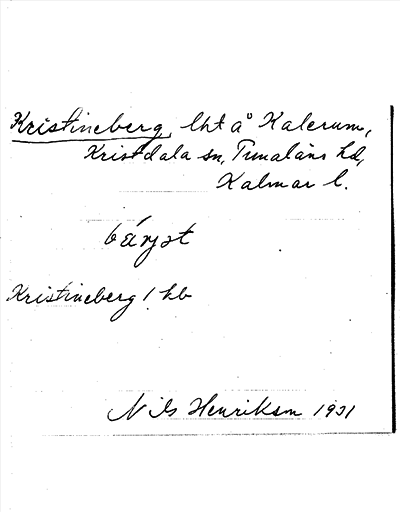 Kristineberg, lht å Kalerum,
Kristdala sn, Tunaläns hd,
Kalmar l.
bärjət
Kristineberg / hb
Nils Henrikson 1931